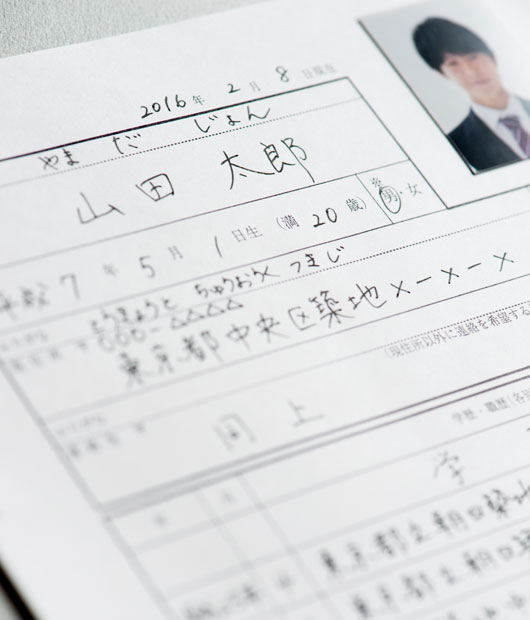 2016年 2月 8日現在
やま だ じょん
山田 太郎
平成7年5月1日生 (満20歳) 男・女
とうきょうと ちゅうおうく つきじ
000-△△△△
東京都中央区築地×-×-×
(現住所以外に連絡を希望する
同上
学歴・職歴(各別
学
東京都立朝日築地
東京都立朝日築